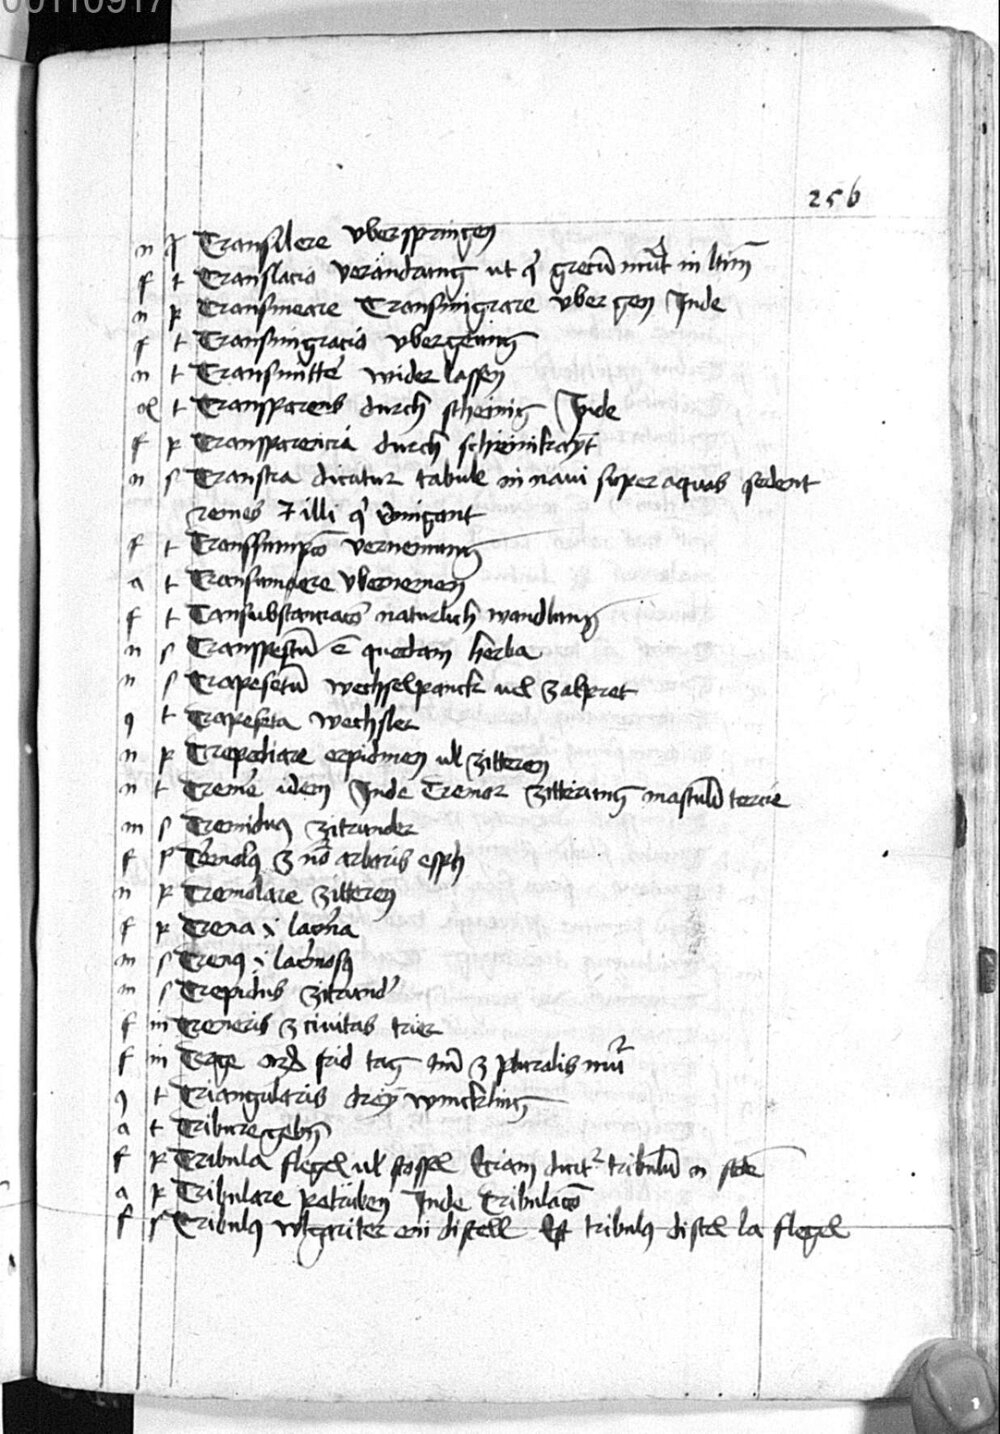 00110917
256
n q Transilere vberspringen
f t Translacio verändrung ut q grecu mut in latin
n p Transmeare Transmigrare vber gen Inde
f t Transmigracio vbergeung
n t Transmitte wider lassen
ol t Transparens durch scheinig Inde
f p Transparencia durch scheinikayt
n s Transtra dicatur tabule in naui super aquas sedent
remes 7 illi q
f t Transsumpco vernemung
a t Transumere vbernemen
f t Tansubstanciaco naturlich wandlung
n s e quedam herba
n s Trapesetu wechselpanck uel zalpret
9 t Trapeseta wechsler
n p Trepediare erpidmen ul zitteren
n t Treme idem Inde Tremor zitterung masculi tercie
m s Tremidus zitrander
f s Tremolus 3 no arboris esph
n p Tremolare zitteren
f p Trena i lacrima
m s Trenus i lacrimosus
m s Trepidus zitrand
f iii Treueris 3 ciuitas trier
f iii frid tag 3 pluralis nu
9 t Triangularis drey winckling
a t Tribuere geben
f p Tribula flegel ul stossel Etiam dicit tribulu n
a p Tribulare petrüben Inde Tribulaco
f s Tribulus wlgariter ein distell Est tribulus distel la flegel